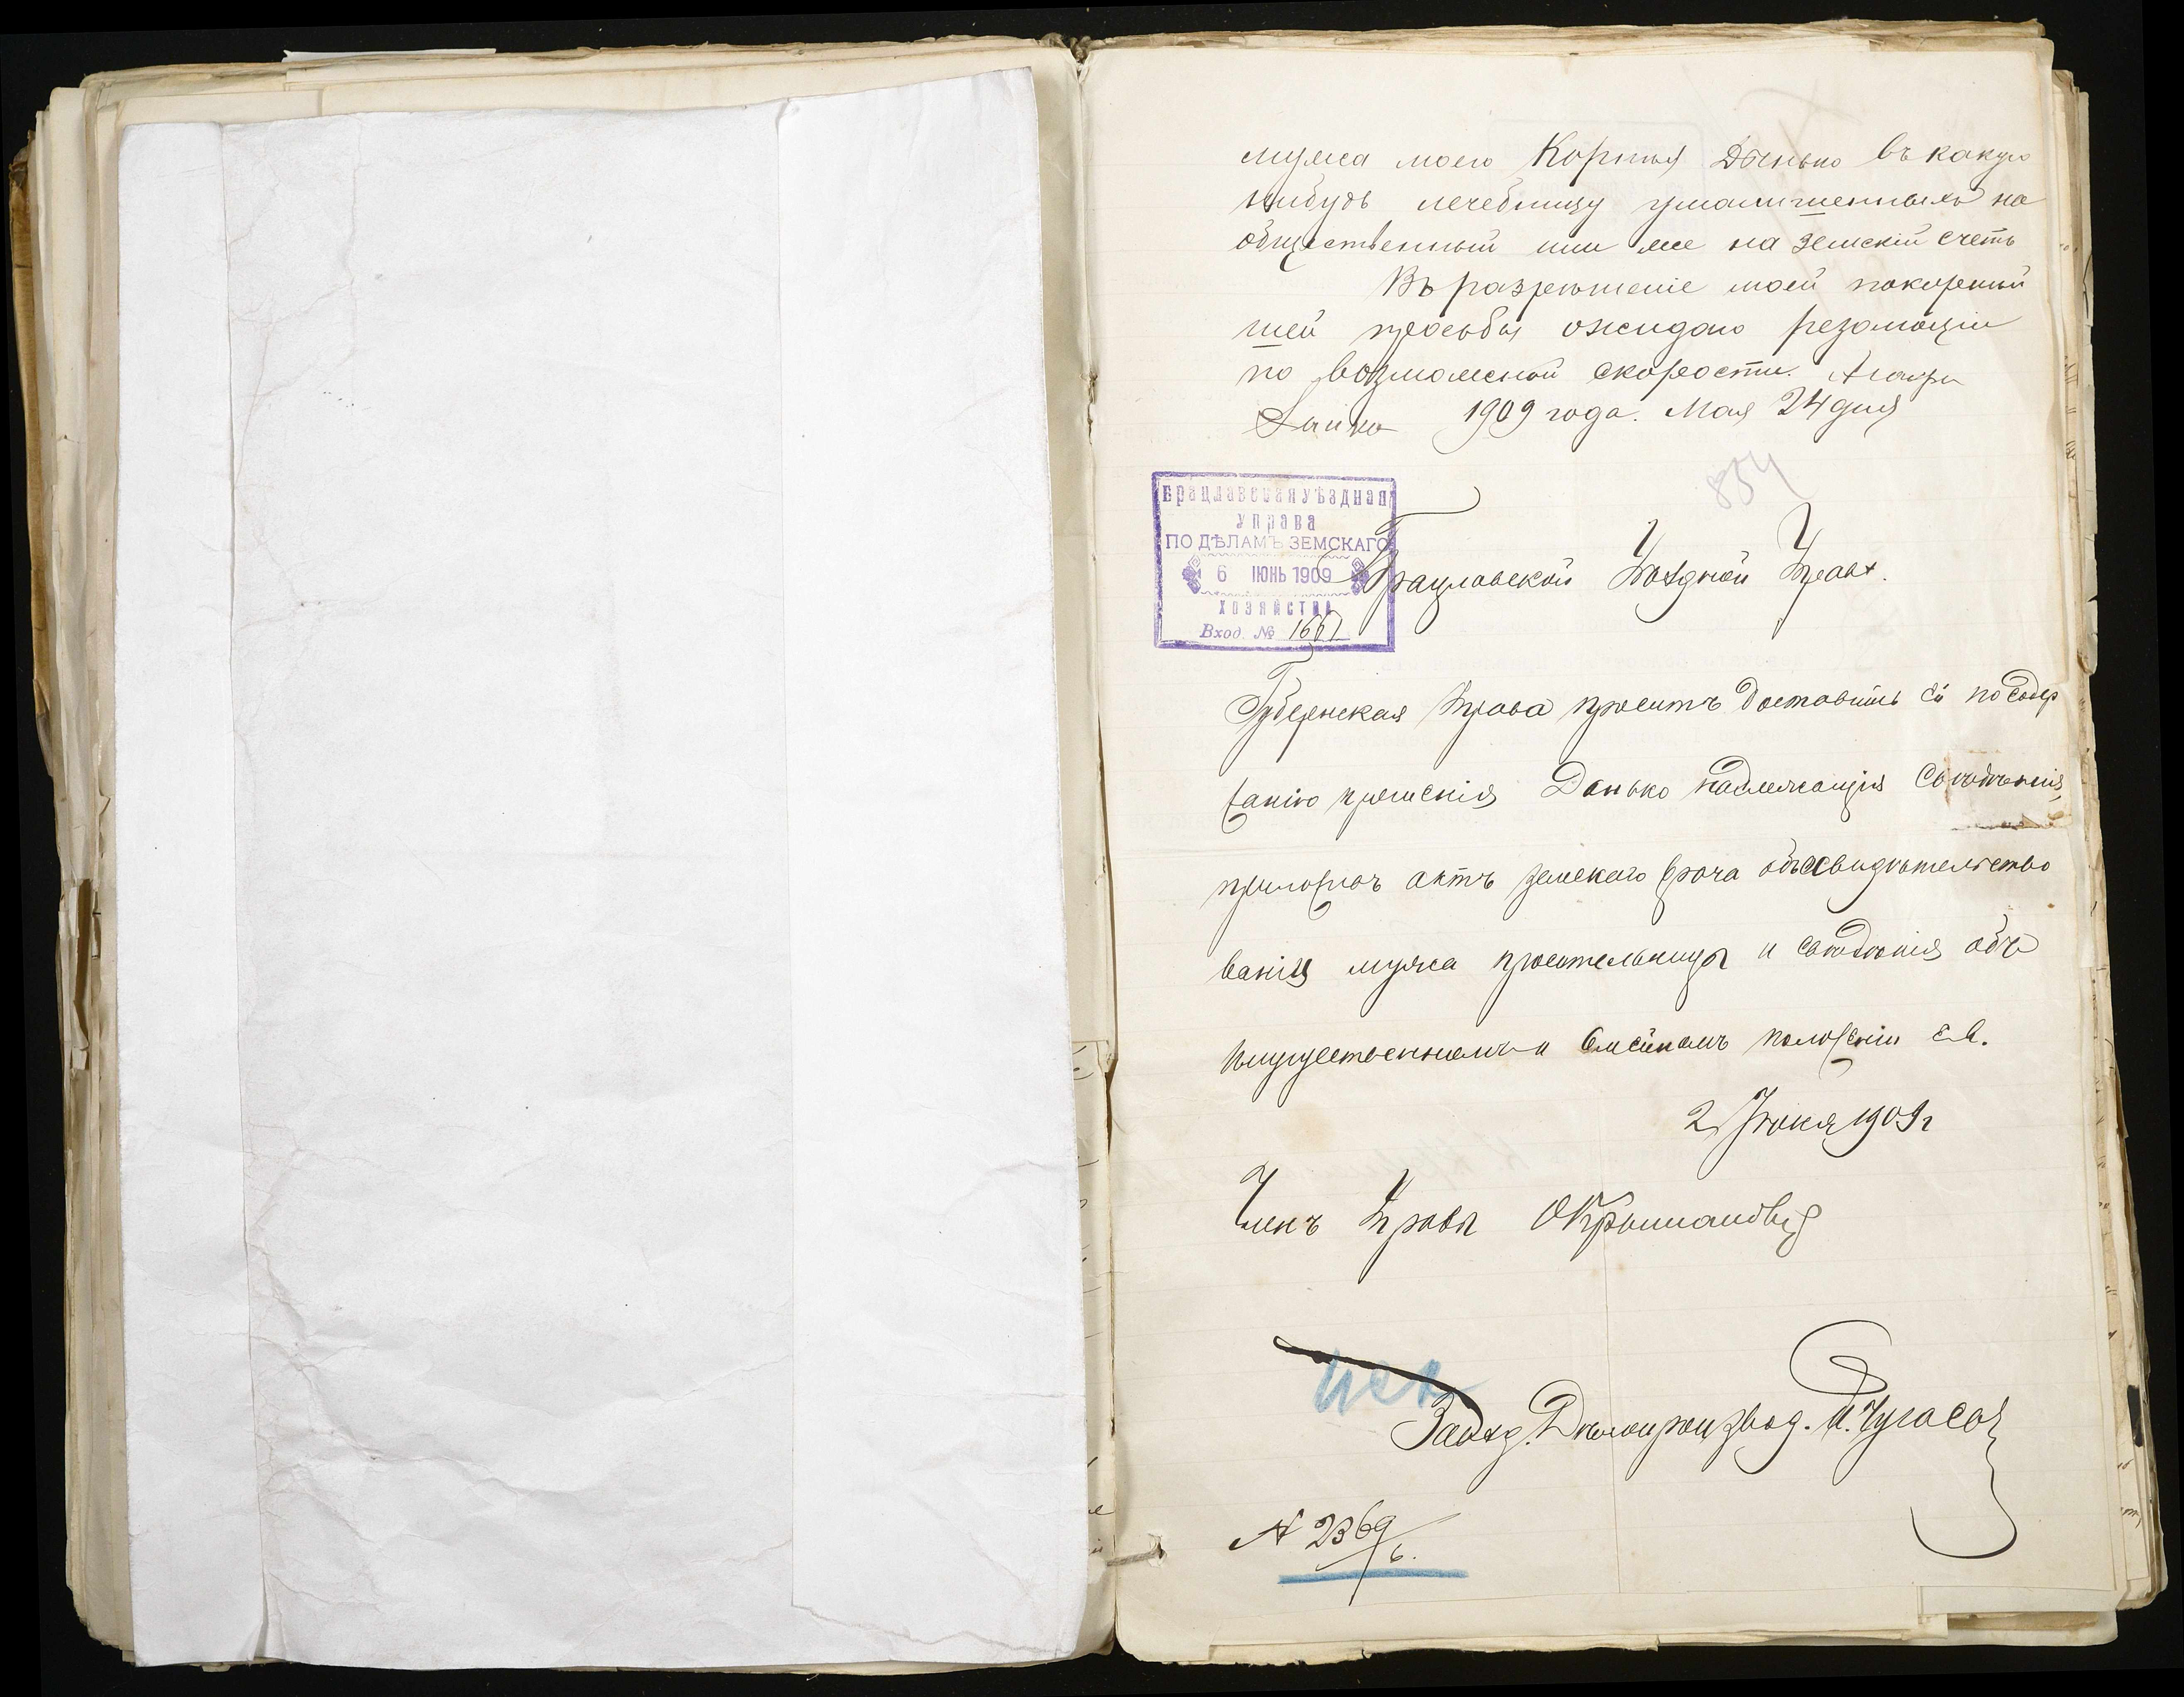 мужа моего Корнія Данько въ какую
нибудь лечебницу умалишенныхъ на
общественный или же на земскій счетъ
Въ разрешеніе моей покорнѣй
шей просьбы ожидаю резолюціи
по возможной скорости.
Данько 1909 года. Мая 24 дня
854
Брацлавская уѣздная
управа
ПО ДѢЛАМЪ ЗЕМСКАГО
6 ІЮНЬ 1909
хозяйства
Вход. № 1667
Брацлавской Уѣздной Управѣ.
Губернская Управа проситъ доставить ей по содер
жанію прошенія Данько надлежащія свѣдѣнія,
приложивъ актъ земскаго врача освидѣтельство
ванія мужа просительницы и свѣдѣнія объ
имущественномъ и семейномъ положеніи ея.
2 Іюня 1909 г
Членъ Управы
Завѣд. Дѣлопроизвод.
№ 2369/6.